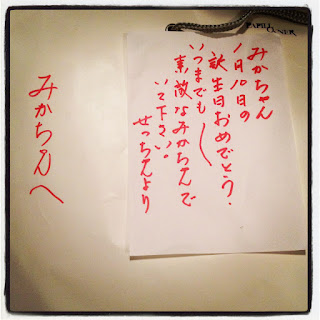 みかちゃんへ
みかちゃん
1月10日の
誕生日おめでとう．
いつまでも
素敵なみかちゃんで
いて下さい。
せっちゃんより